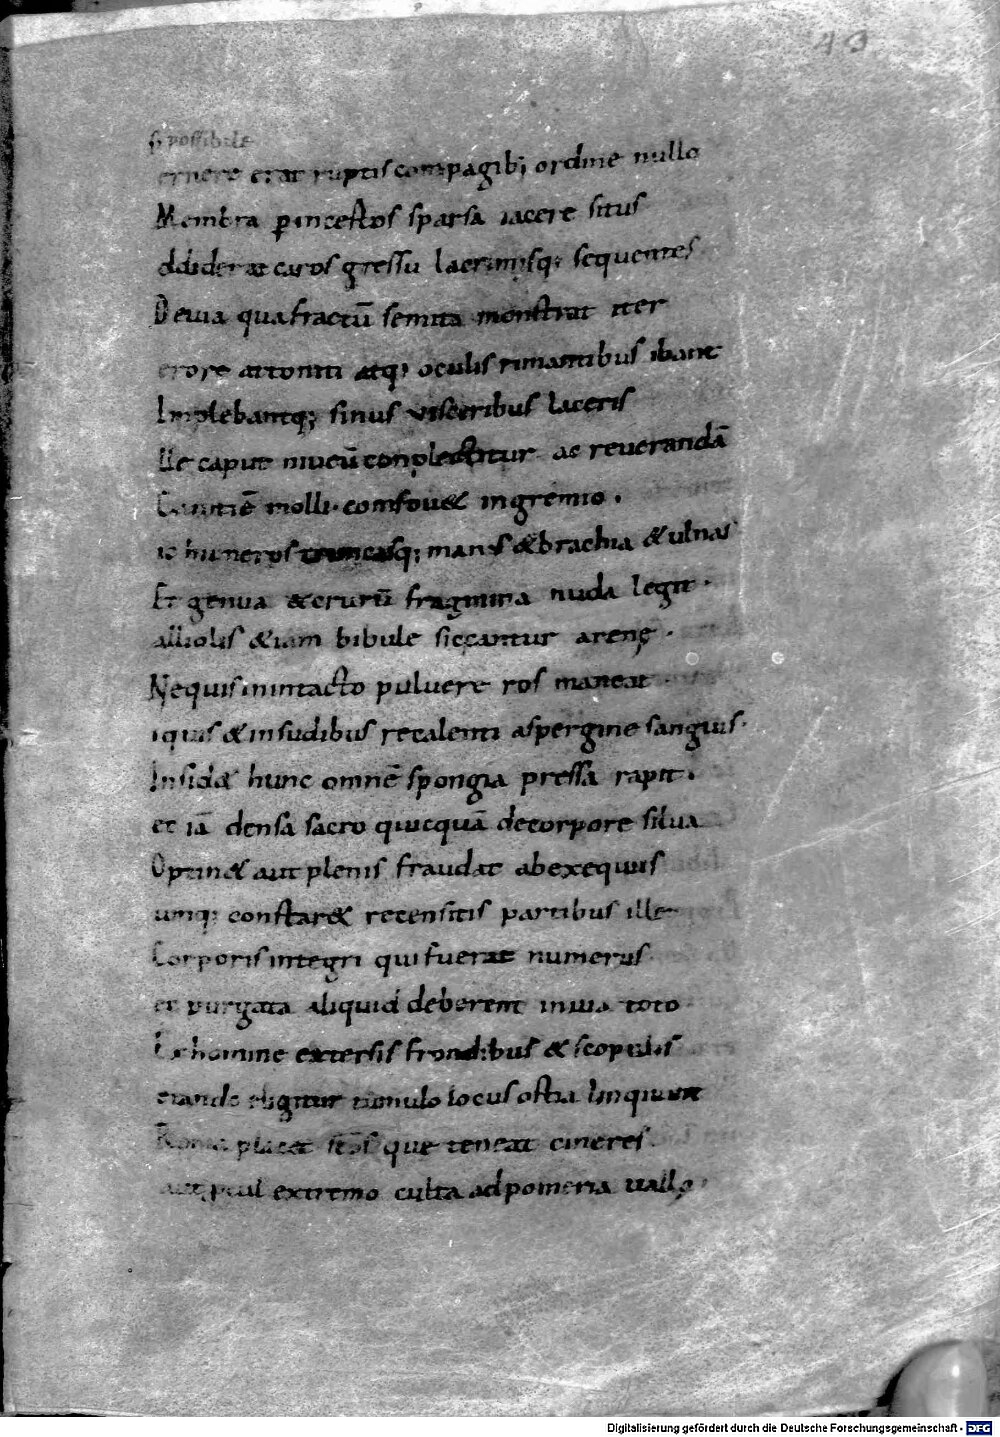 43
si possibile
ernere erat ruptis compagib; ordine nullo
Membra p incestos sparsa iacere situs
ddiderat caros gressu lacrimisq; sequentes
Deuia qua fractũ semita monstrat iter
erore attoniti atq; oculis rimantibus ibant
Implebantq; sinus visceribus laceris
lle caput niueũ conplectitur ac reuerandã
Canitiẽ molli · comfou& in gremio ·
ic humeros truncasq; manus & brachia & ulnas
Et genua & crurũ fragmina nuda legit ·
alliolis & iam bibule siccantur arenę ·
Nequis in intacto puluere ros maneat
iquis & in sudibus recalenti aspergine sanguis ·
Insid& hunc omnẽ spongia pressa rapit ·
ec iã densa sacro quicquã de corpore silua
Optin& aut plenis fraudat ab exequiis
umq; constar& recensitis partibus ille
Corporis integri qui fuerat numerus
ec purgata aliquid deberent inuia toto
Ex homine extersis frondibus & scopulis
etando eligitur tumulo locus ostia linquunt
Roma placet scõs que teneat cineres
aut pcul extremo culta ad pomeria uallo ·
Digitalisierung gefördert durch die Deutsche Forschungsgemeinschaft - DFG